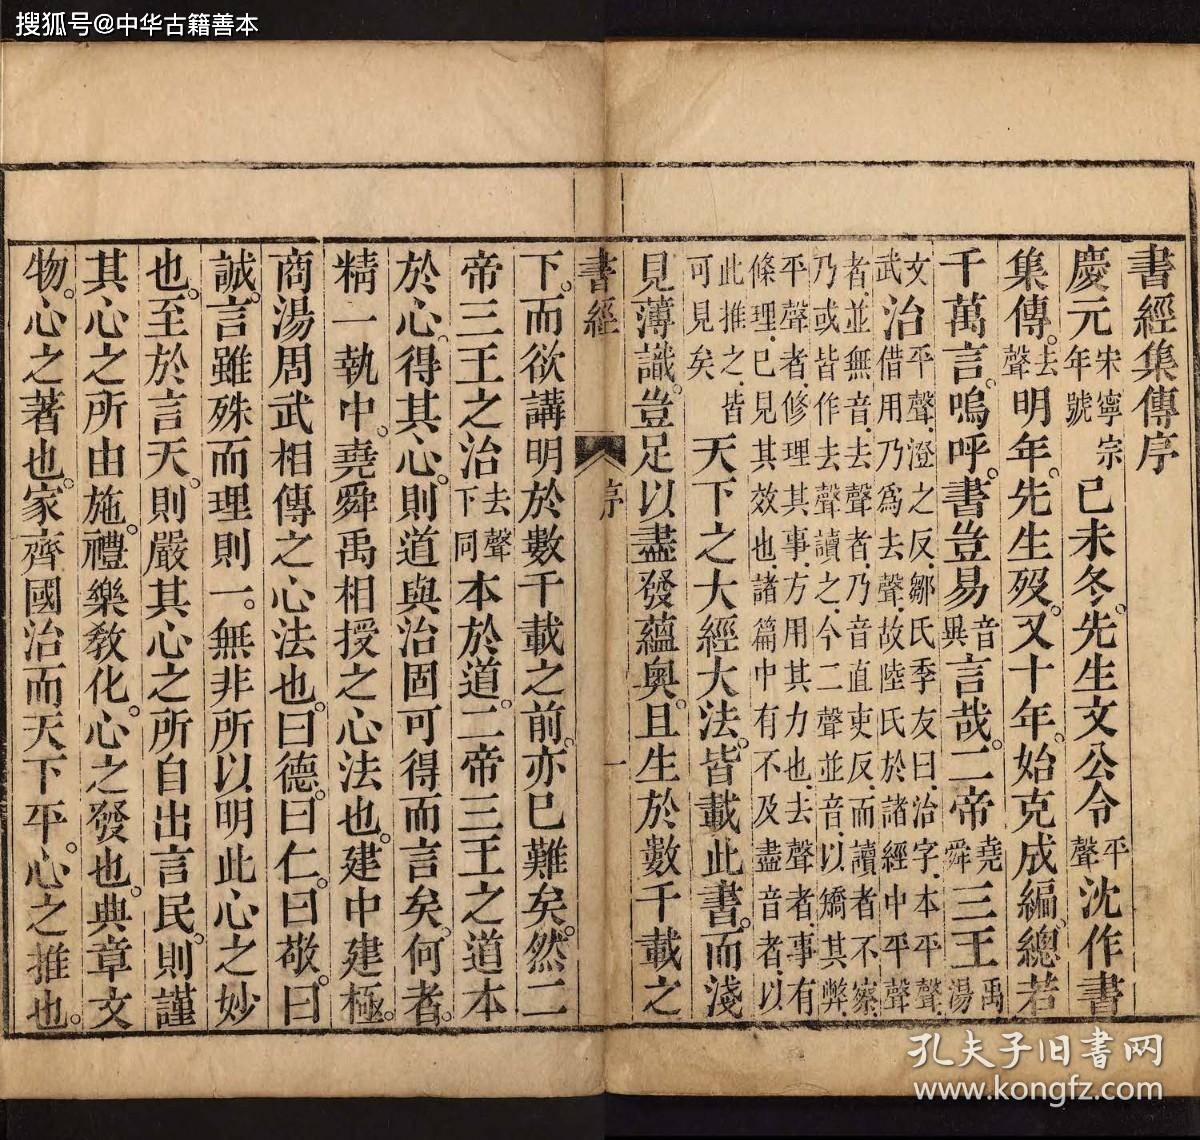 搜狐号@中华古籍善本
書經集傳序
慶元宋寧宗年號已未冬。先生文公令平聲沈作書
集傳。去聲明年。先生殁。又十年。始克成編。總若
千萬言。嗚呼。書豈易音異言哉。二帝堯舜三王禹湯
文武治平聲.澄之反.鄒氏季友曰.治字.本平聲.借用乃爲去聲.故陸氏於諸經中平聲
者.並無音.去聲者.乃音直吏反.而讀者不察.乃或皆作去聲讀之.今二聲並音.以矯其弊.
平聲者.修理其事.方用其力也.去聲者.事有條理.已見其效也.諸篇中有不及盡音者.以
此推之.皆可見矣天下之大經大法。皆載此書。而淺
見薄識。豈足以盡發蘊奧。且生於數千載之
書經 序 一
下。而欲講明於數千載之前。亦已難矣。然二
帝三王之治去聲下同本於道。二帝三王之道本
於心。得其心。則道與治固可得而言矣。何者。
精一執中。堯舜禹相授之心法也。建中建極。
商湯周武相傳之心法也。曰德。曰仁。曰敬。曰
誠。言雖殊而理則一。無非所以明此心之妙
也。至於言天。則嚴其心之所自出言民。則謹
其心之所由施。禮樂教化。心之發也。典章文
物。心之著也。家齊國治而天下平。心之推也。
孔夫子旧书网
www.kongfz.com